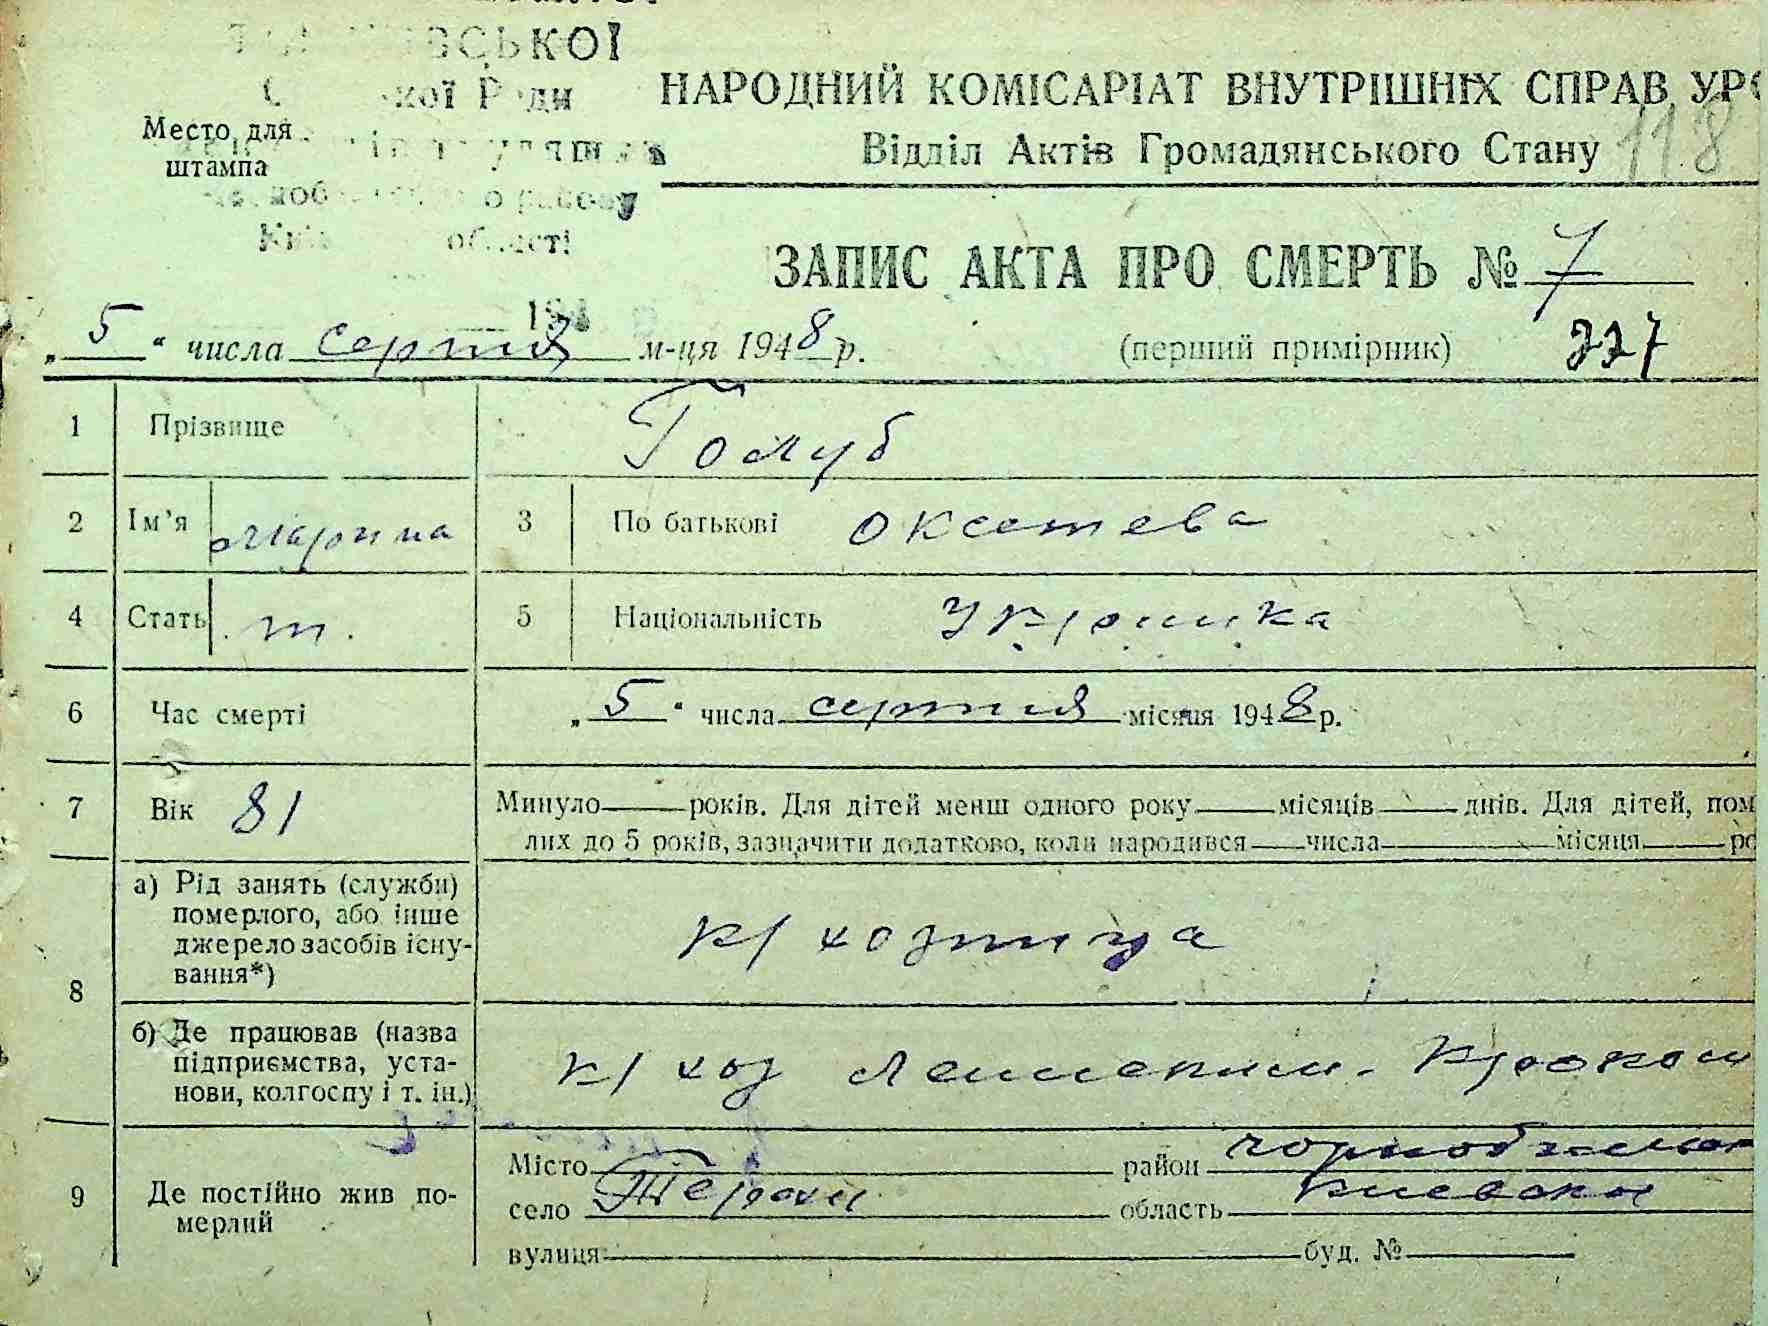 ської
кої Ради
НАРОДНИЙ КОМІСАРІАТ ВНУТРІШНІХ СПРАВ УРС
Відділ Актів Громадянського Стану 118
Место для
штампа
району
області
ЗАПИС АКТА ПРО СМЕРТЬ № 7
„5“ числа серпня м-ця 1948 р. (перший примірник) 227
1 Прізвище Голуб
2 Ім’я Марина 3 По батькові
4 Стать 5 Національність Українка
6 Час смерті „5“ числа серпня місяця 1948 р.
7 Вік 81 Минуло років. Для дітей менш одного року місяців днів. Для дітей, пом
лих до 5 років, зазначити додатково, коли народився числа місяця ро
8 а) Рід занять (служби)
померлого, або інше
джерело засобів існу-
вання*)
к/хозница
б) Де працював (назва
підприємства, уста-
нови, колгоспу і т. ін.)
к/хоз
9 Де постійно жив по-
мерлий
Місто район
село область Киевская
вулиця буд. №